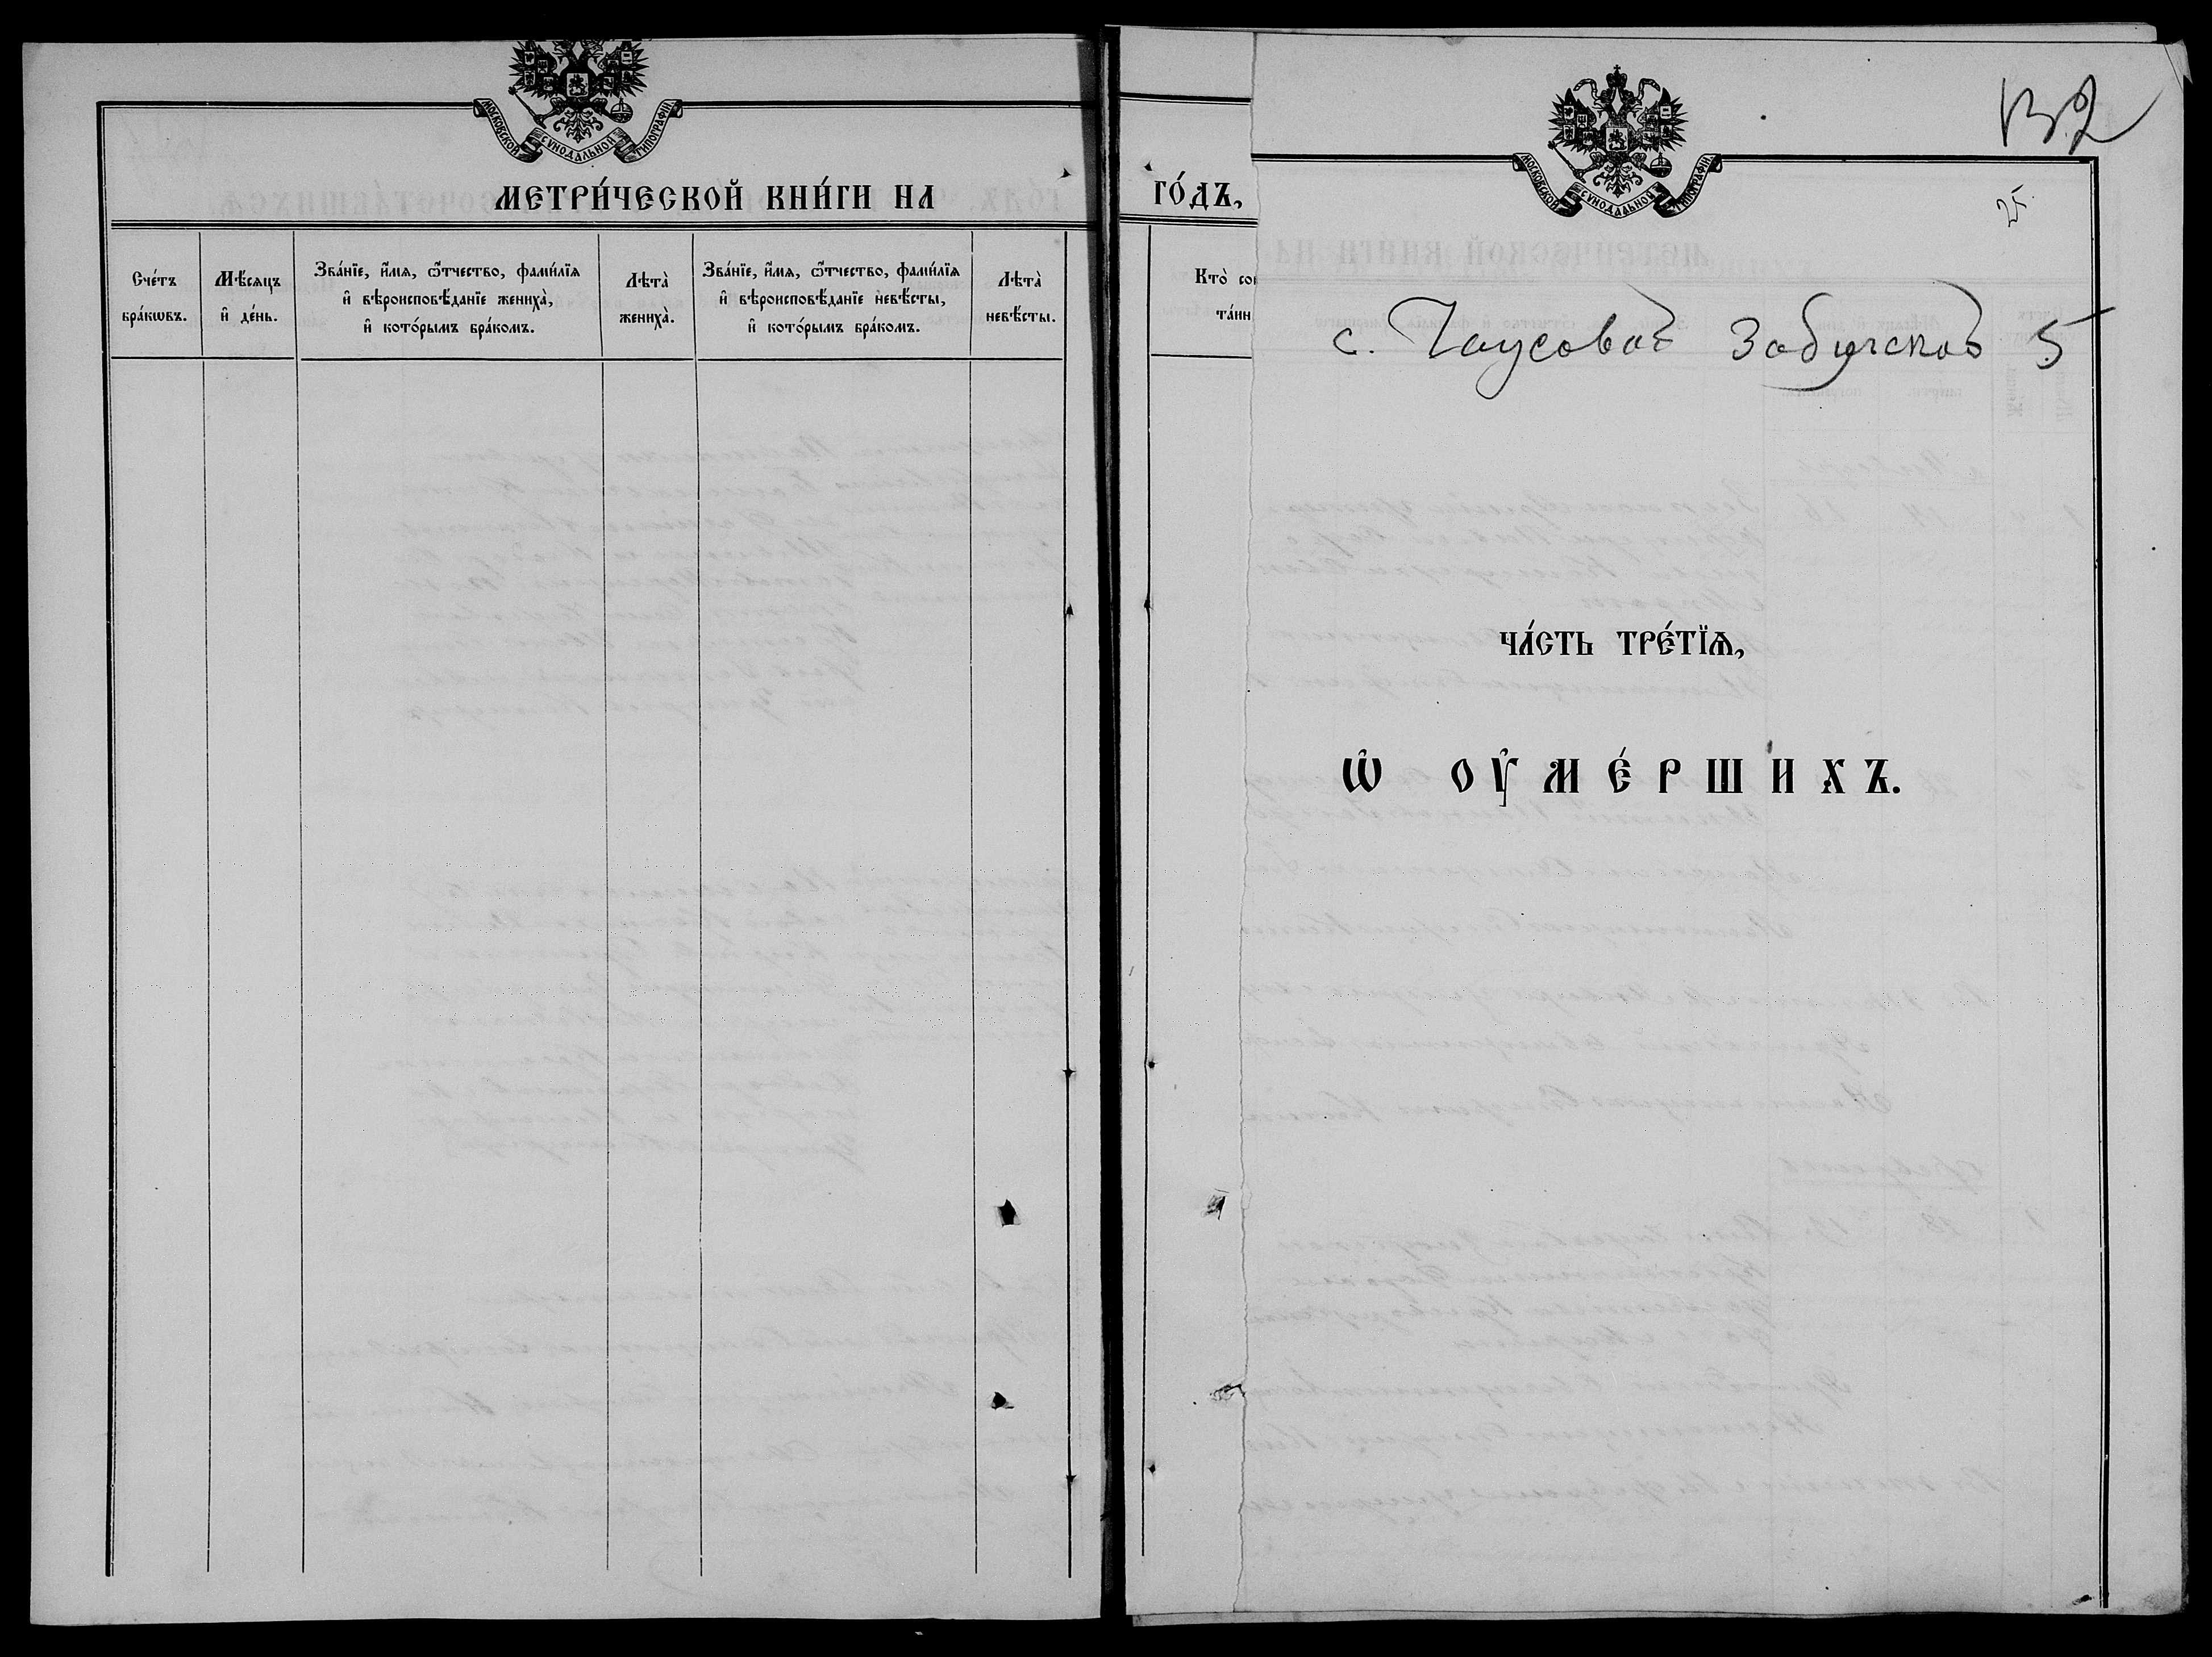 МОСКОВСКОЙ СѴНОДАЛЬНОЙ ТИПОГРАФІИ.
МЕТРИ́ЧЕСКОЙ КНИ́ГИ НА
Сче́тъ бра́кѡвъ.
Мѣ́сяцъ и҆ де́нь.
Зва́нїе, и҆́мѧ, ѻ҆́тчество, фами́лїѧ
и҆ вѣроисповѣ́данїе жениха̀,
и҆ кото́рымъ бра́комъ.
Лѣта̀ жениха̀.
Зва́нїе, и҆́мѧ, ѻ҆́тчество, фами́лїѧ
и҆ вѣроисповѣ́данїе невѣ́сты,
и҆ кото́рымъ бра́комъ.
Лѣта̀ невѣ́сты.
ГО́ДЪ,
Кто̀ со
та́ин
МОСКОВСКОЙ СѴНОДАЛЬНОЙ ТИПОГРАФІИ.
132
25.
с. Чаусовой Забужской 5
ЧА́СТЬ ТРЕ́ТЇѦ,
Ѡ҆ ОУ҆МЕ́РШИХЪ.